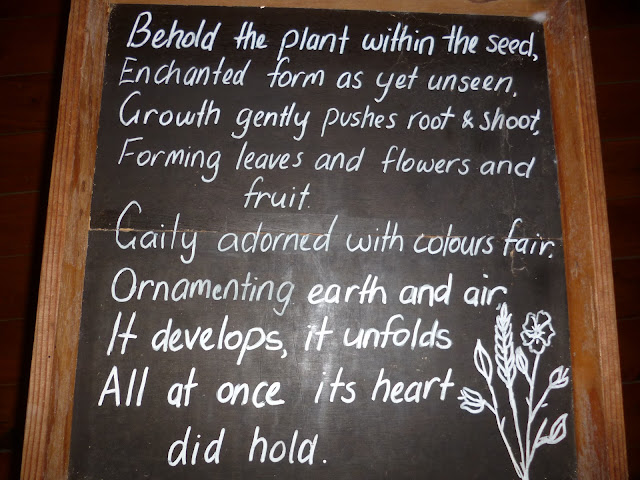 Behold the plant within the seed,
Enchanted form as yet unseen,
Growth gently pushes root & shoot,
Forming leaves and flowers and
fruit.
Gaily adorned with colours fair,
Ornamenting earth and air,
It develops, it unfolds
All at once its heart
did hold.